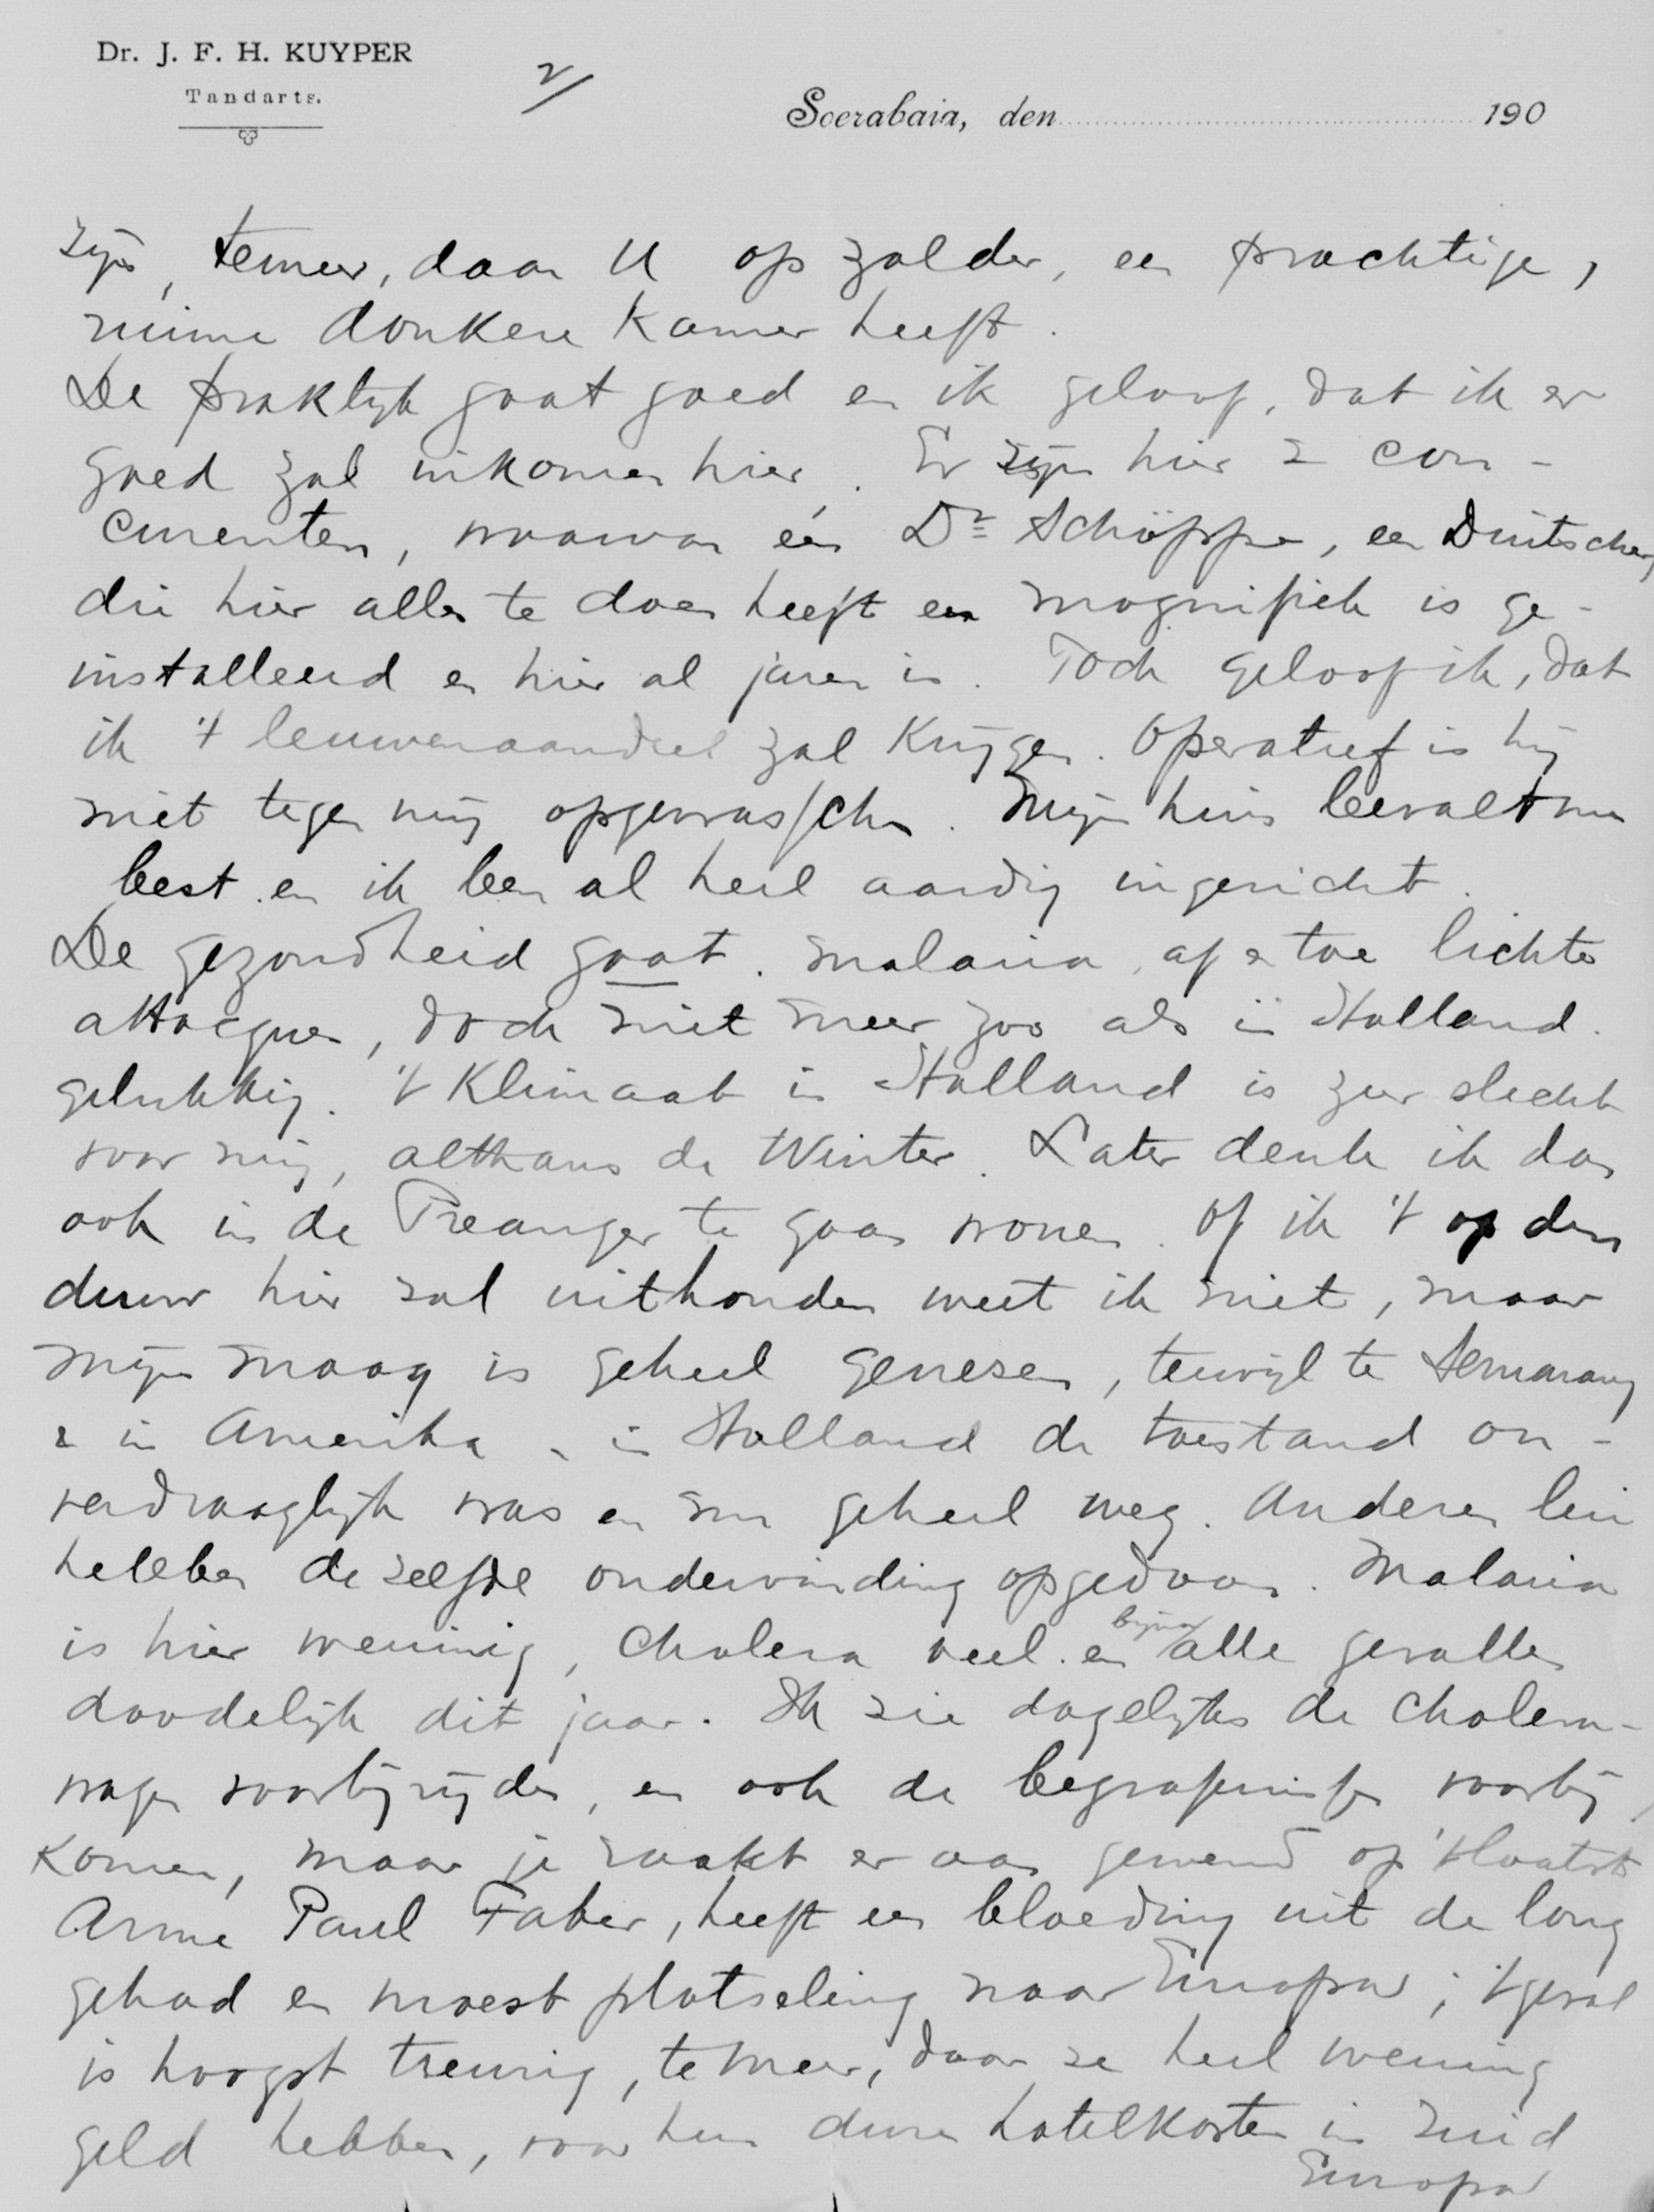 Dr. J. F. H. KUYPER
Tandarts.
2/
Soerabaia, den 190
zijn, temeer, daar U op zolder, een prachtige,
ruime donkere kamer heeft.
De praktijk gaat goed en ik geloof, dat ik er
goed zal inkomen hier. Er zijn hier 2 con-
curenten, waarvan één Dr Schöppe, een Duitscher,
die hier alles te doen heeft en magnifiek is ge-
installeerd en hier al jaren is. Toch geloof ik, dat
ik 't leeuwenaandeel zal krijgen. Operatief is hij
niet tegen mij opgewasschen. Mijn huis bevalt me
best en ik ben al heel aardig ingericht.
De gezondheid gaat. Malaria, af en toe lichte
attacques, doch niet meer zoo als in Holland.
gelukkig. 't Klimaat in Holland is zeer slecht
voor mij, althans de Winter. Later denk ik dan
ook in de Preanger te gaan wonen. Of ik 't op den
duur hier zal uithouden weet ik niet, maar
mijn maag is geheel genezen, terwijl te Semarang
& in Amerika & in Holland de toestand on-
verdraaglijk was en nu geheel weg. Anderen hier
hebben dezelfde ondervinding opgedaan. Malaria
is hier weinig, Cholera veel en bijna alle gevallen
doodelijk dit jaar. Ik zie dagelijks de Cholera-
wagen voorbijrijden, en ook de begrafenissen voorbij
komen, maar je raakt er aan gewend op 't laatst.
Arme Paul Faber, heeft een bloeding uit de long
gehad en moest plotseling naar Europa; 't geval
is hoogst treurig, te meer, daar ze heel weinig
geld hebben, voor hun dure hotelkosten in Zuid
Europa